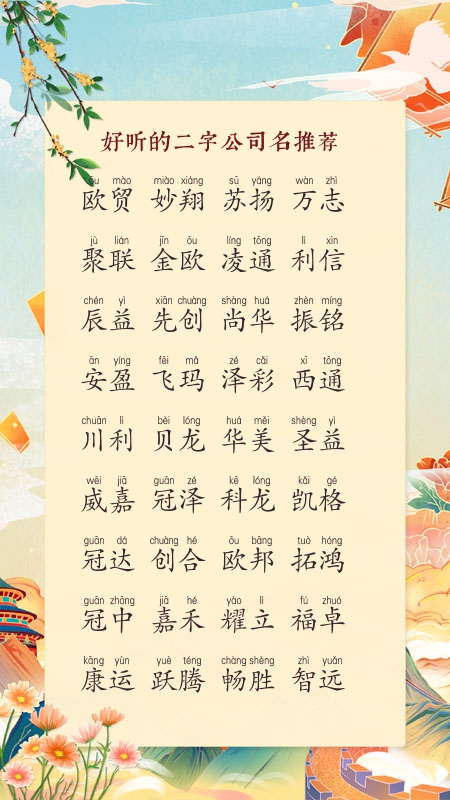 好听的二字公司名推荐
ōu mào miào xiáng sū yáng wàn zhì
欧贸 妙翔 苏扬 万志
jù lián jīn ōu líng tōng lì xìn
聚联 金欧 凌通 利信
chén yì xiān chuàng shàng huá zhèn míng
辰益 先创 尚华 振铭
ān yíng fēi mǎ zé cǎi xī tōng
安盈 飞玛 泽彩 西通
chuān lì bèi lóng huá měi shèng yì
川利 贝龙 华美 圣益
wēi jiā guān zé kē lóng kǎi gé
威嘉 冠泽 科龙 凯格
guān dá chuàng hé ōu bāng tuò hóng
冠达 创合 欧邦 拓鸿
guān zhōng jiā hé yào lì fú zhuó
冠中 嘉禾 耀立 福卓
kāng yùn yuè téng chàng shèng zhì yuǎn
康运 跃腾 畅胜 智远